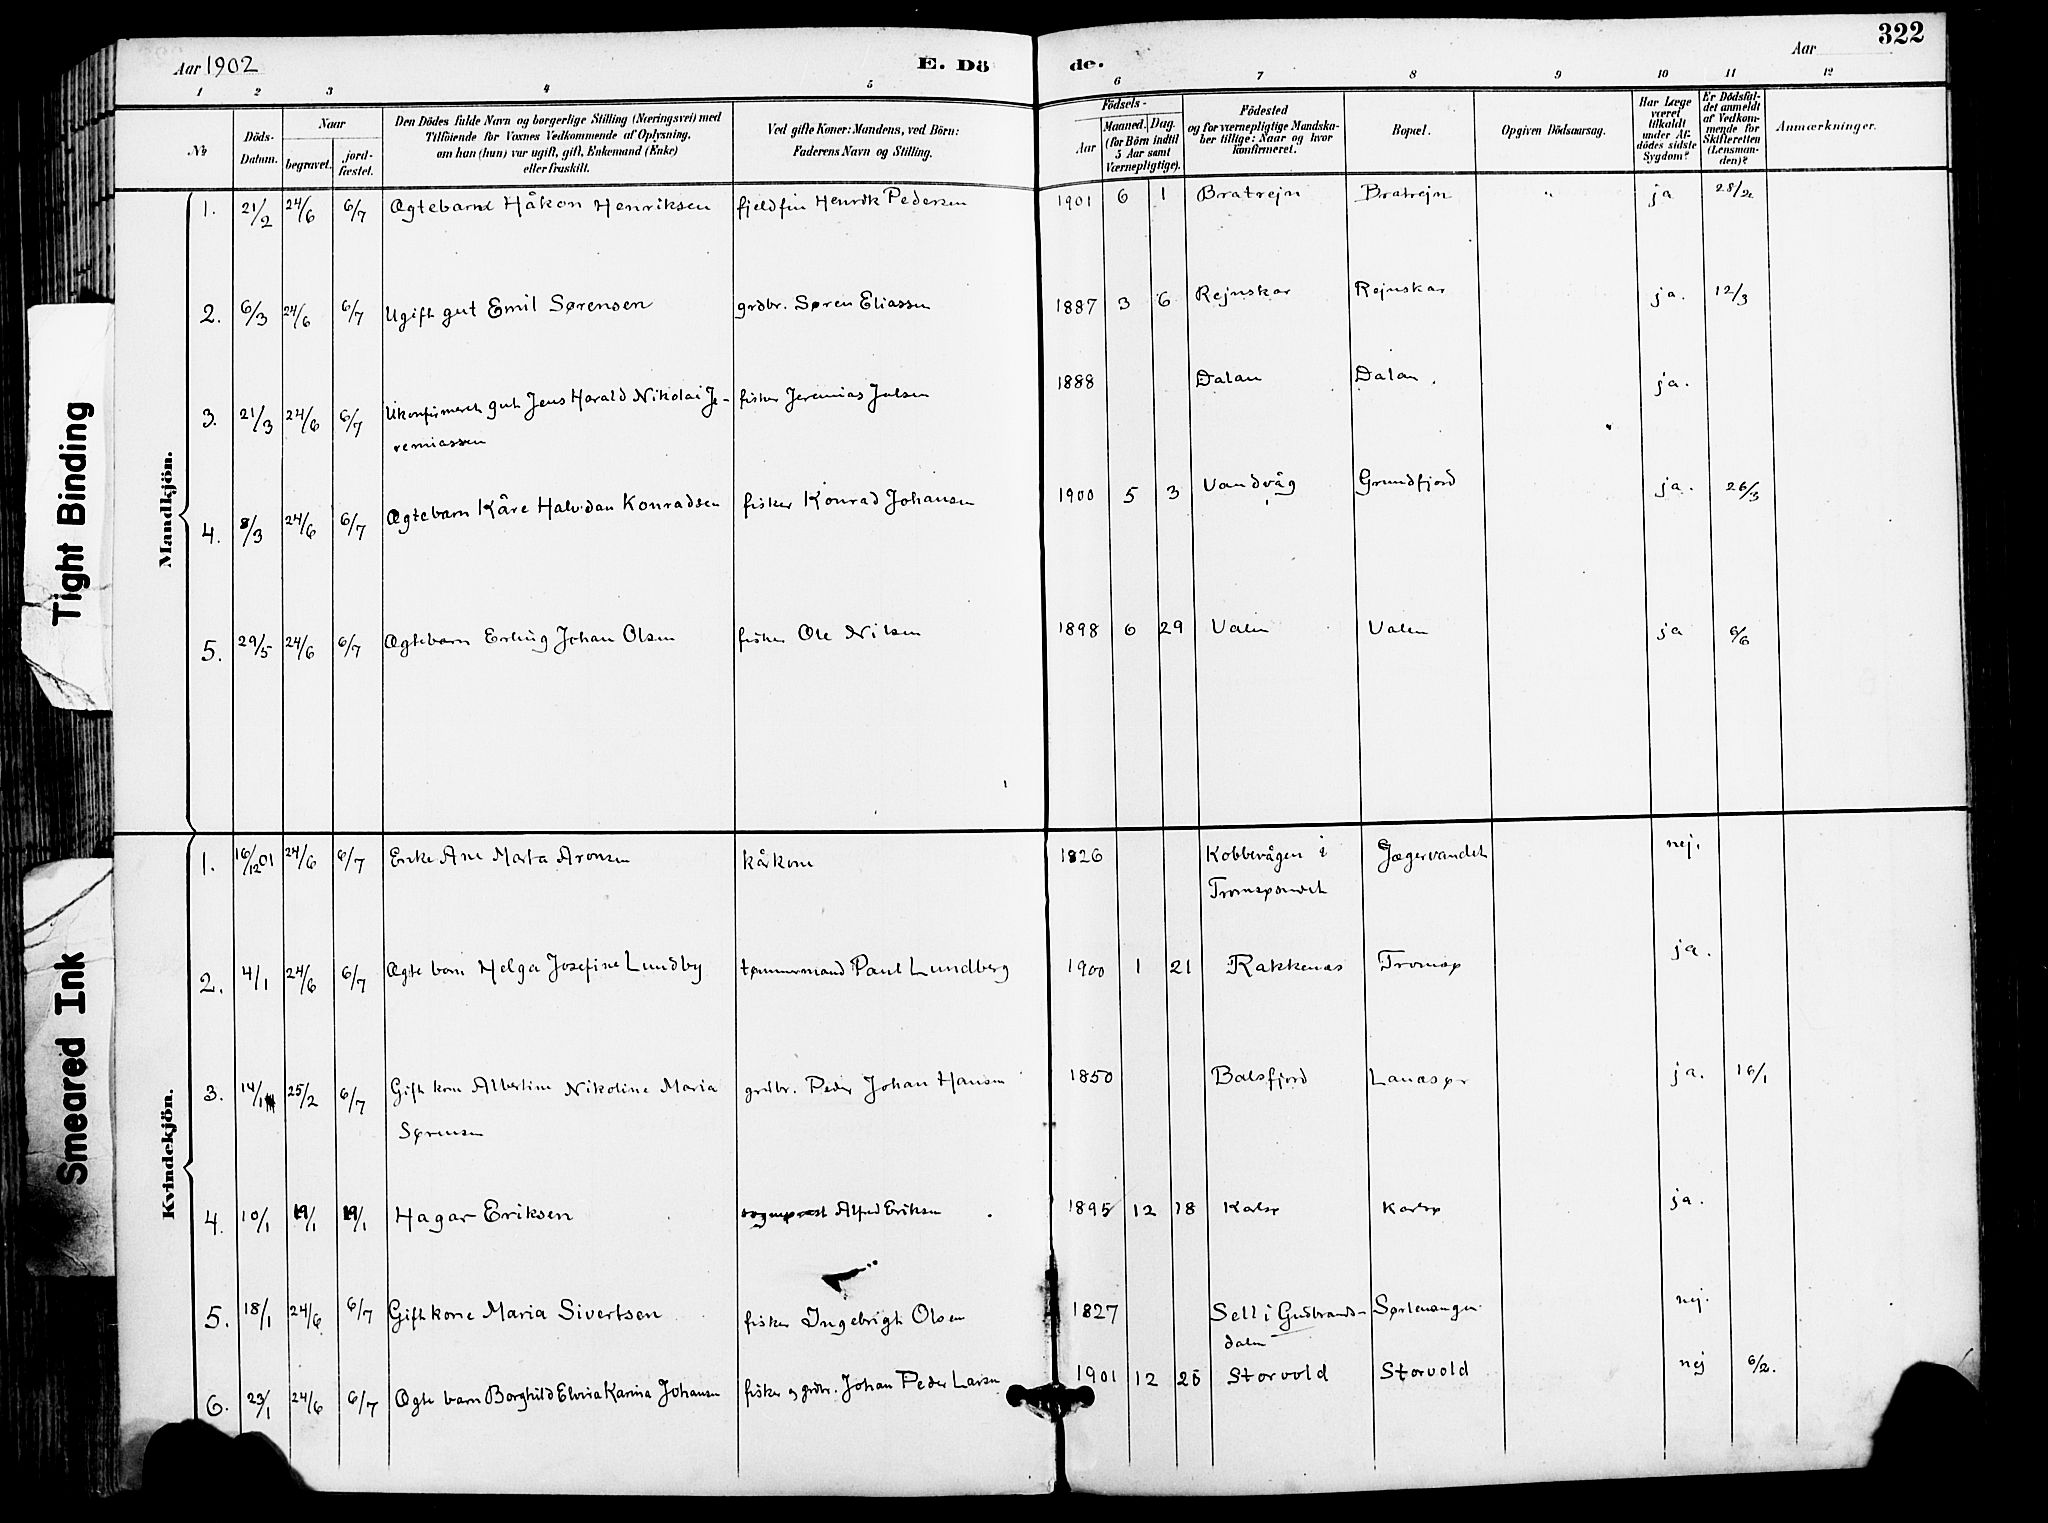 Aar 1902
E. Dö
de.
Aar
322
1 2 3 4 5 6 7 8 9 10 11 12
№
Döds-Datum.
Naar
begravet.
jord-fæstet.
Den Dödes fulde Navn og borgerlige Stilling (Næringsvei) med
Tilföiende for Voxnes Vedkommende af Oplysning,
om han (hun) var ugift, gift, Enkemand (Enke)
eller fraskilt.
Ved gifte Koner: Mandens, ved Börn:
Faderens Navn og Stilling.
Födsels-
Aar
Maaned. Dag.
(for Börn indtil
5 Aar samt
Værnepligtige).
Födested
og for værnepligtige Mandska-
ber tillige: Naar og hvor
konfirmeret.
Bopæl.
Opgiven Dödsaarsag.
Har Læge
været
tilkaldt
under Af-
dödes sidste
Sygdom?
Er Dödsfal-
det anmeldt
af Vedkom-
mende for
Skifteretten
(Lensman-
den)?
Anmærkninger.
Mandkjön.
1. 21/2 24/6 6/7 Ægtebarn Håkon Henriksen fjeldfin Henrik Pedersen 1901 6 1 Bratrejn Bratrejn " ja 28/2
2. 6/3 24/6 6/7 Ugift gut Emil Sørensen grdbr. Søren Eliassen 1887 3 6 Rejnskar Rejnskar ja. 12/3
3. 21/3 24/6 6/7 Ukonfirmeret gut Jens Harald Nikolai Je- fisker Jeremias Julsen 1888 Dalan Dalan ja.
remiassen
4. 8/3 24/6 6/7 Ægtebarn Kåre Halvdan Konradsen fisker Konrad Johansen 1900 5 3 Vandvåg Grundfjord ja. 26/3
5. 29/5 24/6 6/7 Ægtebarn Erling Johan Olsen fisker Ole Nilsen 1898 6 29 Valen Valen ja 6/6
Kvindekjön.
1. 16/12 01 24/6 6/7 Enke Ane Marta Aronsen kårkone 1826 Kobbevågen i Jægervandet nej.
Tromsøsundet
2. 4/1 24/6 6/7 Ægte barn Helga Josefine Lundby tømmermand Paul Lundberg 1900 1 21 Rakkenæs Tromsø ja.
3. 14/1 25/2 6/7 Gift kone Albertine Nikoline Maria grdbr. Peder Johan Hansen 1850 Balsfjord Lanæsør ja. 16/1
Sørensen
4. 10/1 19/1 19/1 Hagar Eriksen sogneprest Alfred Eriksen 1895 12 18 Karlsø Karlsø ja.
5. 18/1 24/6 6/7 Gift kone Maria Sivertsen fisker Ingebrigt Olsen 1827 Sell i Gudbrands- Sørlenangen nej.
dalen
6. 23/1 24/6 6/7 Ægte barn Borghild Elvira Karina Johansen fisker og grdbr. Johan Peder Larsen 1901 12 25 Storvold Storvold nej 6/2.
Tight Binding
Smeared Ink